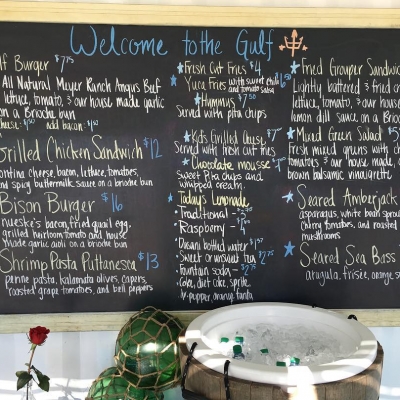 Welcome to the Gulf
lf Burger $7.75
All Natural Meyer Ranch Angus Beef
lettuce, tomato, & our house made garlic
on a Brioche bun
add bacon
Grilled Chicken Sandwich $12
ontina cheese, bacon, lettuce, tomatoes,
and spicy buttermilk sauce on a brioche bun
Bison Burger $16
nueske's bacon, fried quail egg,
grilled heirloom tomato and house
made garlic aoli on a brioche bun
Shrimp Pasta Puttanesca $13
penne pasta, kalamata olives, capers,
roasted grape tomatoes, and bell peppers
Fresh Cut Fries $4
Yuca Fries with sweet chili
and tomato salsa
Hummus $7.50
Served with pita chips
Kids Grilled Cheese $7
Served with fresh cut fries
Chocolate mousse
Sweet Pita chips and
whipped cream
Today's Lemonade
Traditional -
Raspberry -
Dasani bottled water
Sweet or unsweet tea
Fountain soda -
Coke, diet coke, sprite,
dr. pepper, orange fanta
Fried Grouper Sandwic
Lightly battered & fried
lettuce, tomato, & our house
lemon dill sauce on a Brioc
Mixed Green Salad
Fresh mixed greens with ch
tomatoes & our house made,
brown balsamic vinaigrette
Seared Amberjack
asparagus, white bean
cherry tomatoes, and roasted
mushrooms
Seared Sea Bass
arugula, frisée, orange